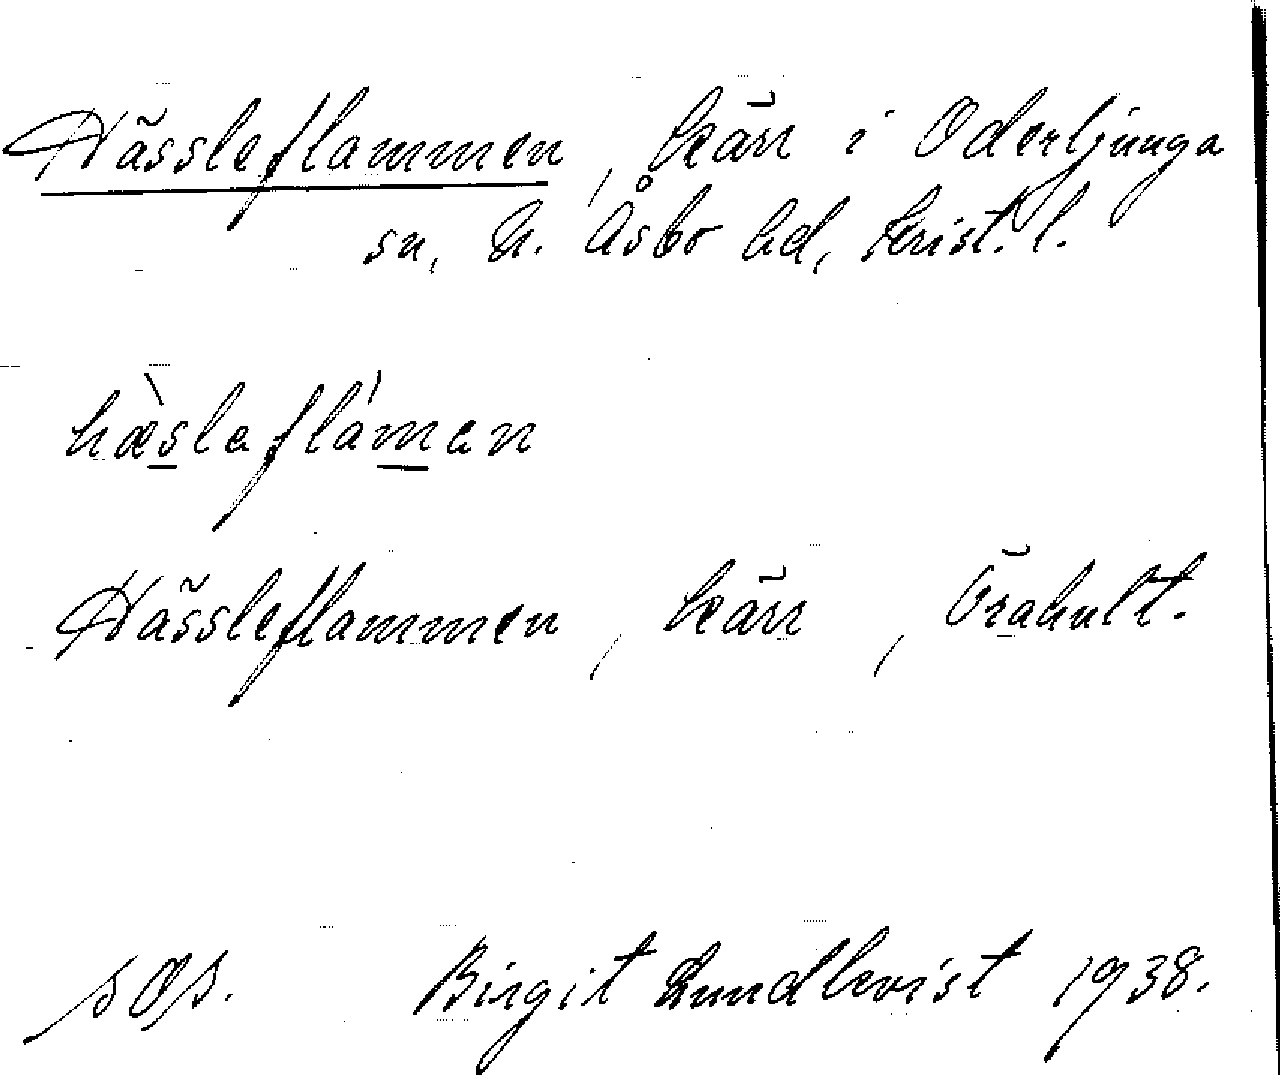 Hässleflammen, kärr i Oderljunga
sn, N. Åsbo hd, Krist. l.
hæ̀slafláman
Hässleflammen, kärr, Örahult.
Birgit Lundkvist 1938.